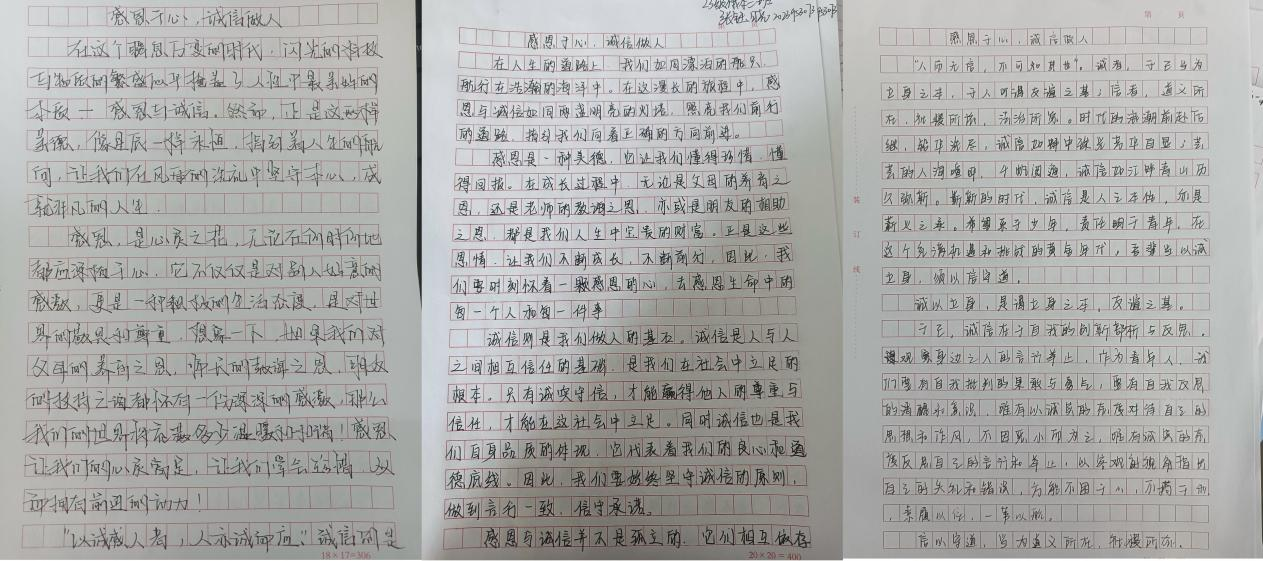 感恩于心，诚信做人
在这个瞬息万变的时代，闪光的科技
与物质的繁盛似乎掩盖了人性中最美好的
本质——感恩与诚信。然而，正是这两样
美德，像星辰一样永恒，指引着人生的航
向，让我们在风雨的洗礼中坚守本心，成
就非凡的人生．
感恩，是心灵之花，无论在何时何地
都应深植于心，它不仅仅是对别人好意的
感激，更是一种积极的生活态度，是对世
界的敬畏和尊重，想象一下，如果我们对
父母的养育之恩，师长的教诲之恩，朋友
的扶持之谊都怀有一份深深的感激，那么
我们的世界将充满多少温暖和和谐！感恩
让我们的心灵富足，让我们学会珍惜，从
而拥有前进的动力！
“以诚感人者，人亦诚而应。”诚信同是
18×17=306
感恩于心，诚信做人
在人生的道路上，我们如同漂泊的船只，
航行在浩瀚的海洋中。在这漫长的旅程中，感
恩与诚信如同两盏明亮的灯塔，照亮我们前行
的道路，指引我们向着正确的方向前进。
感恩是一种美德，它让我们懂得珍惜，懂
得回报。在成长过程中，无论是父母的养育之
恩，还是老师的教诲之恩，亦或是朋友的相助
之恩，都是我们人生中宝贵的财富。正是这些
恩情，让我们不断成长，不断前行，因此，我
们要时刻怀着一颗感恩的心，去感恩生命中的
每一个人和每一件事
诚信则是我们做人的基石。诚信是人与人
之间相互信任的基础，是我们在社会中立足的
根本。只有诚实守信，才能赢得他人的尊重与
信任，才能在这社会中立足。同时诚信也是我
们自身品质的体现，它代表着我们的良心和道
德底线。因此，我们要始终坚守诚信的原则，
做到言行一致，信守承诺。
感恩与诚信并不是孤立的，它们相互依存
20×20=400
第 页
感恩于心，诚信做人
“人而无信，不可知其也”。诚者，于己当为
立身之本，于人可谓友谊之基；信者，道义所
在，
久弥新。崭新的时代，诚信是人之本位，亦是
新义之本。希望系于少年，责任明于青年，在
这个充满机遇和挑战的黄金年代，吾辈当以诚
立身，须以信守道。
诚以立身，是谓立身之本，友谊之基。
于己，诚信在于自我的剖析与反思。
身边之人的言谈举止，作为青年人，我
们要有自我批判的果敢与勇气，要有自我反思
的清醒和意识，唯有以诚实的态度对待自己的
思想和作风，不因恶小而为之，唯有诚实的态
度反思自己的言行和举止，以客观的视角指出
自己的失礼和错误，方能不困于心，不荷于
信以守道，当为道义所在，
装
订
线